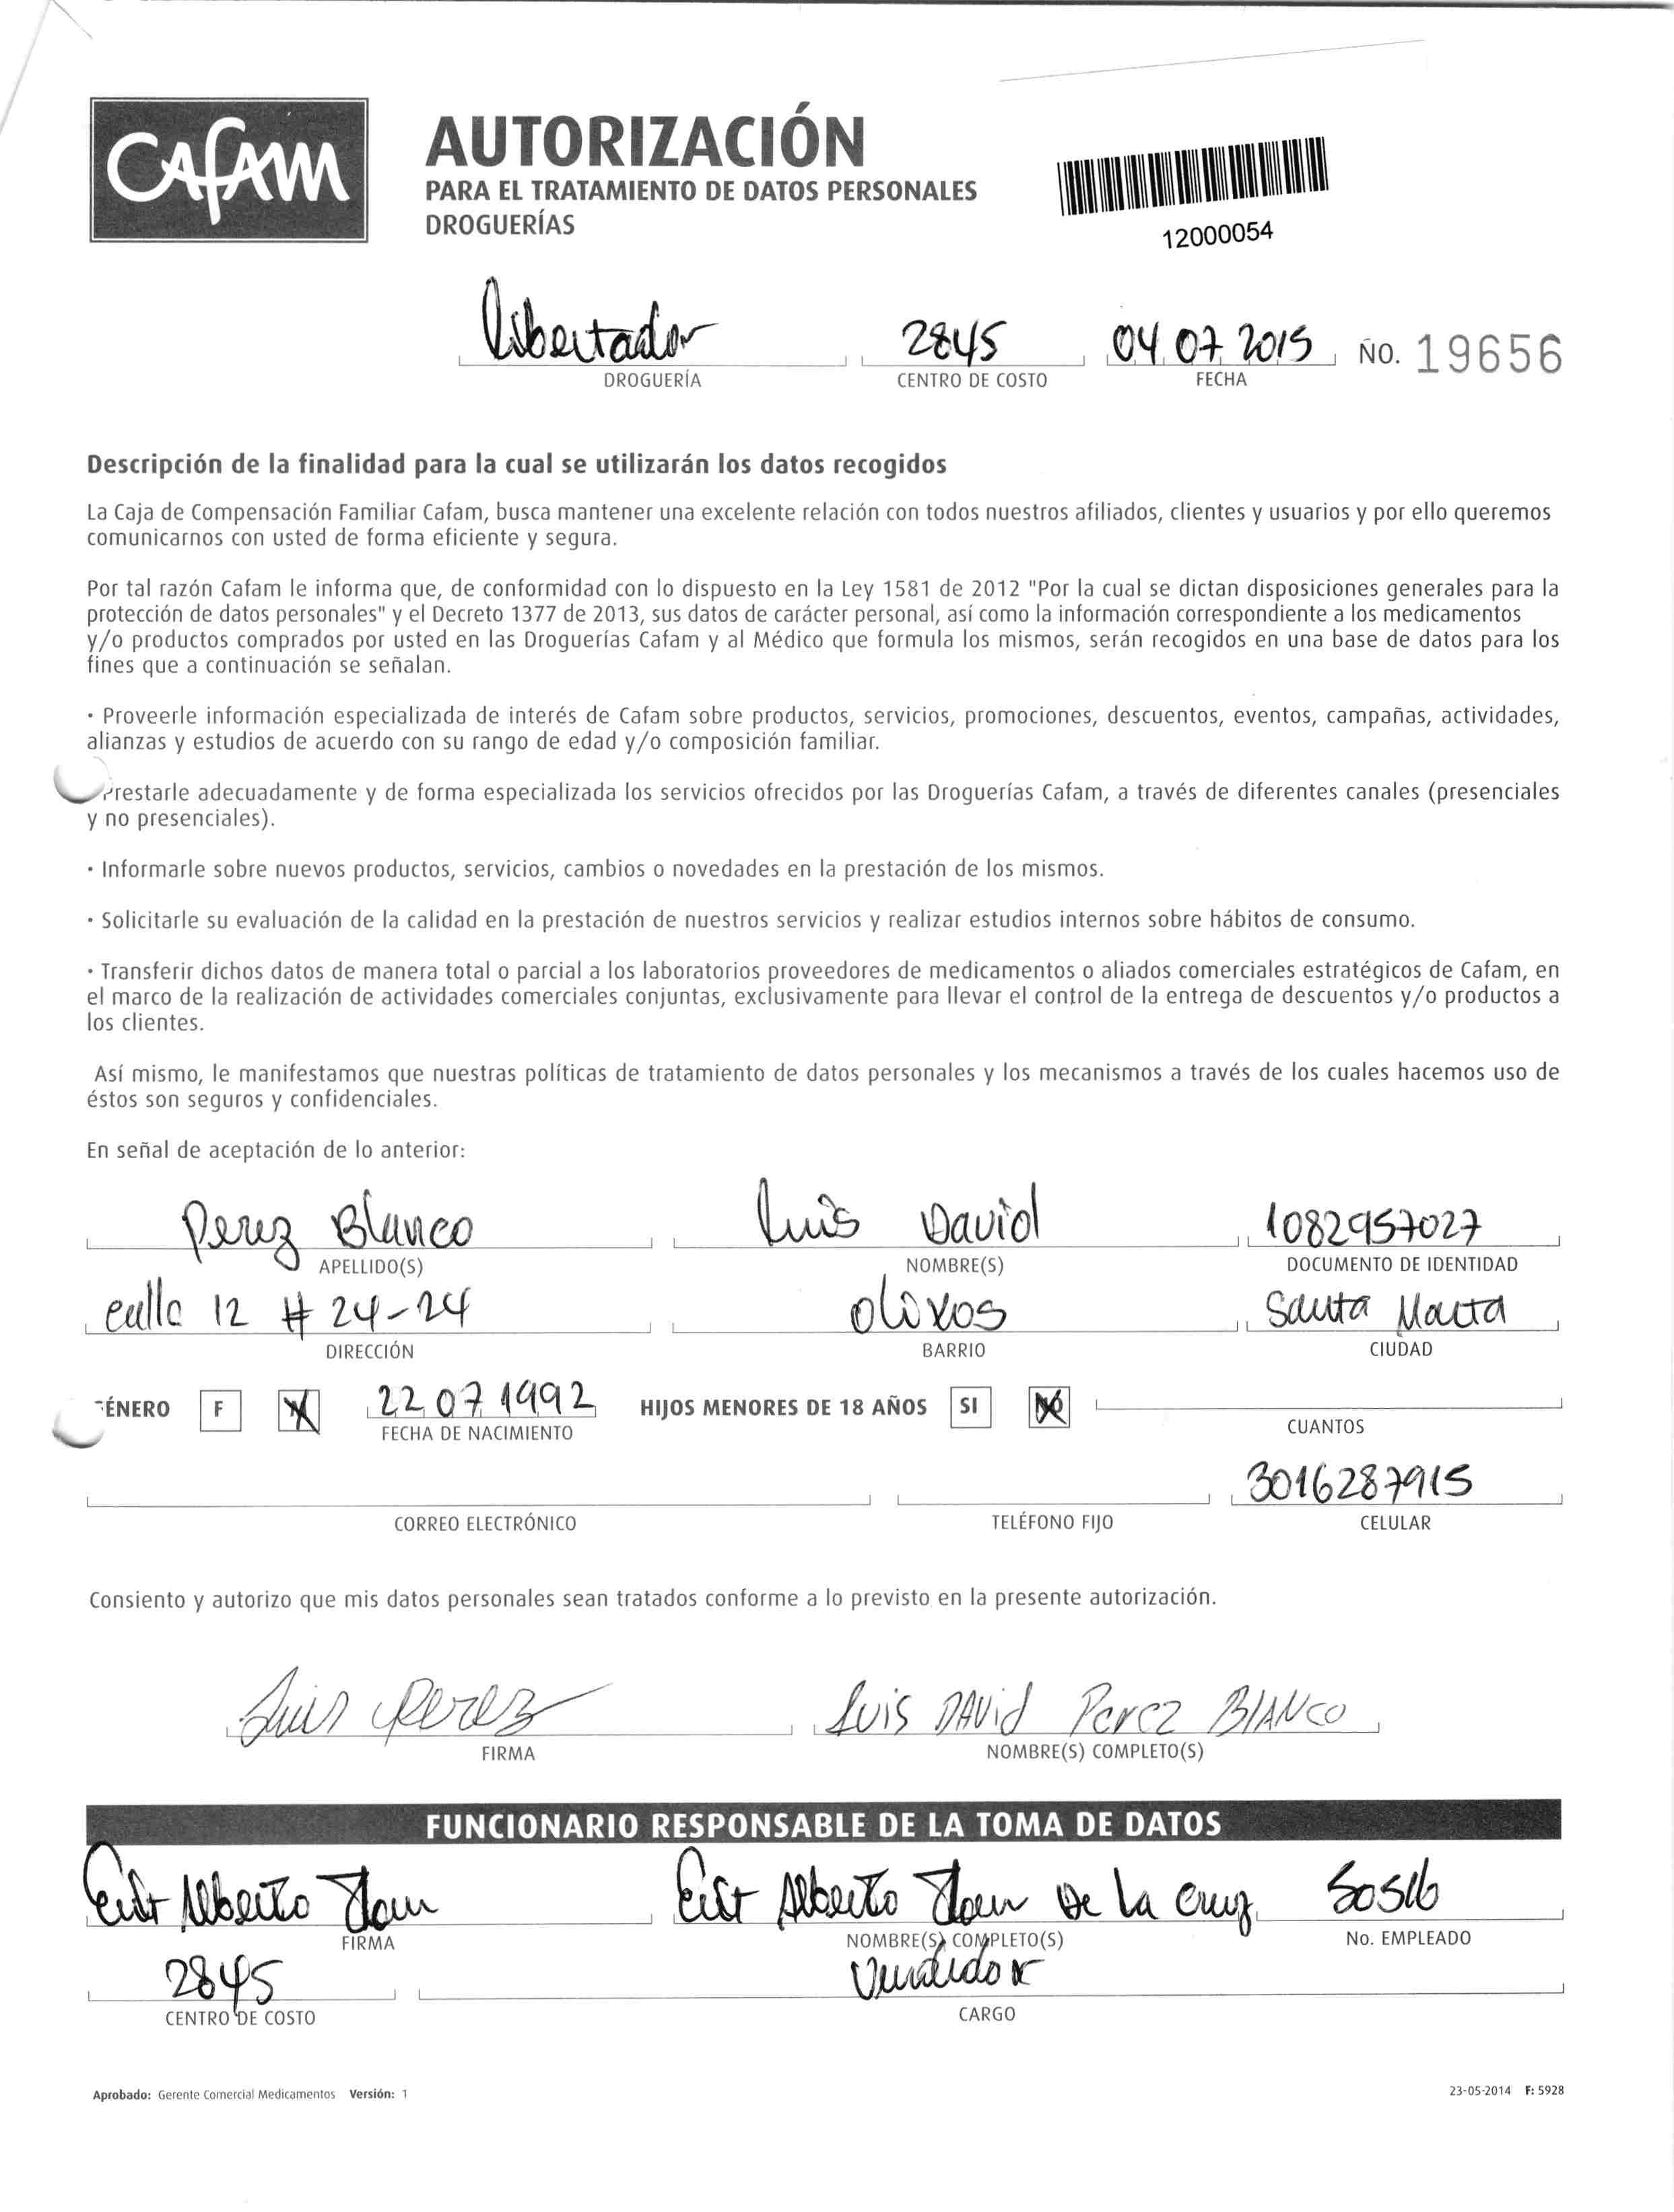 CAFAM
AUTORIZACIÓN
PARA EL TRATAMIENTO DE DATOS PERSONALES
DROGUERÍAS
12000054
Libertador 2845 04 07 2015 No. 19656
DROGUERÍA CENTRO DE COSTO FECHA
Descripción de la finalidad para la cual se utilizarán los datos recogidos
La Caja de Compensación Familiar Cafam, busca mantener una excelente relación con todos nuestros afiliados, clientes y usuarios y por ello queremos
comunicarnos con usted de forma eficiente y segura.
Por tal razón Cafam le informa que, de conformidad con lo dispuesto en la Ley 1581 de 2012 "Por la cual se dictan disposiciones generales para la
protección de datos personales" y el Decreto 1377 de 2013, sus datos de carácter personal, así como la información correspondiente a los medicamentos
y/o productos comprados por usted en las Droguerías Cafam y al Médico que formula los mismos, serán recogidos en una base de datos para los
fines que a continuación se señalan.
· Proveerle información especializada de interés de Cafam sobre productos, servicios, promociones, descuentos, eventos, campañas, actividades,
alianzas y estudios de acuerdo con su rango de edad y/o composición familiar.
Prestarle adecuadamente y de forma especializada los servicios ofrecidos por las Droguerías Cafam, a través de diferentes canales (presenciales
y no presenciales).
· Informarle sobre nuevos productos, servicios, cambios o novedades en la prestación de los mismos.
· Solicitarle su evaluación de la calidad en la prestación de nuestros servicios y realizar estudios internos sobre hábitos de consumo.
· Transferir dichos datos de manera total o parcial a los laboratorios proveedores de medicamentos o aliados comerciales estratégicos de Cafam, en
el marco de la realización de actividades comerciales conjuntas, exclusivamente para llevar el control de la entrega de descuentos y/o productos a
los clientes.
Así mismo, le manifestamos que nuestras políticas de tratamiento de datos personales y los mecanismos a través de los cuales hacemos uso de
éstos son seguros y confidenciales.
En señal de aceptación de lo anterior:
Perez Blanco Luis David 1082957027
APELLIDO(S) NOMBRE(S) DOCUMENTO DE IDENTIDAD
calle 12 # 24-24 olivos Santa Marta
DIRECCIÓN BARRIO CIUDAD
GÉNERO F M 22 07 1992 HIJOS MENORES DE 18 AÑOS SI NO
FECHA DE NACIMIENTO CUANTOS
3016287915
CORREO ELECTRÓNICO TELÉFONO FIJO CELULAR
Consiento y autorizo que mis datos personales sean tratados conforme a lo previsto en la presente autorización.
Luis Perez Luis DAVid Perez BlANco
FIRMA NOMBRE(S) COMPLETO(S)
FUNCIONARIO RESPONSABLE DE LA TOMA DE DATOS
Alberto Alberto De la Cruz
FIRMA NOMBRE(S) COMPLETO(S) No. EMPLEADO
2845 Vendedor
CENTRO DE COSTO CARGO
Aprobado: Gerente Comercial Medicamentos Versión: 1 23-05-2014 F: 5928